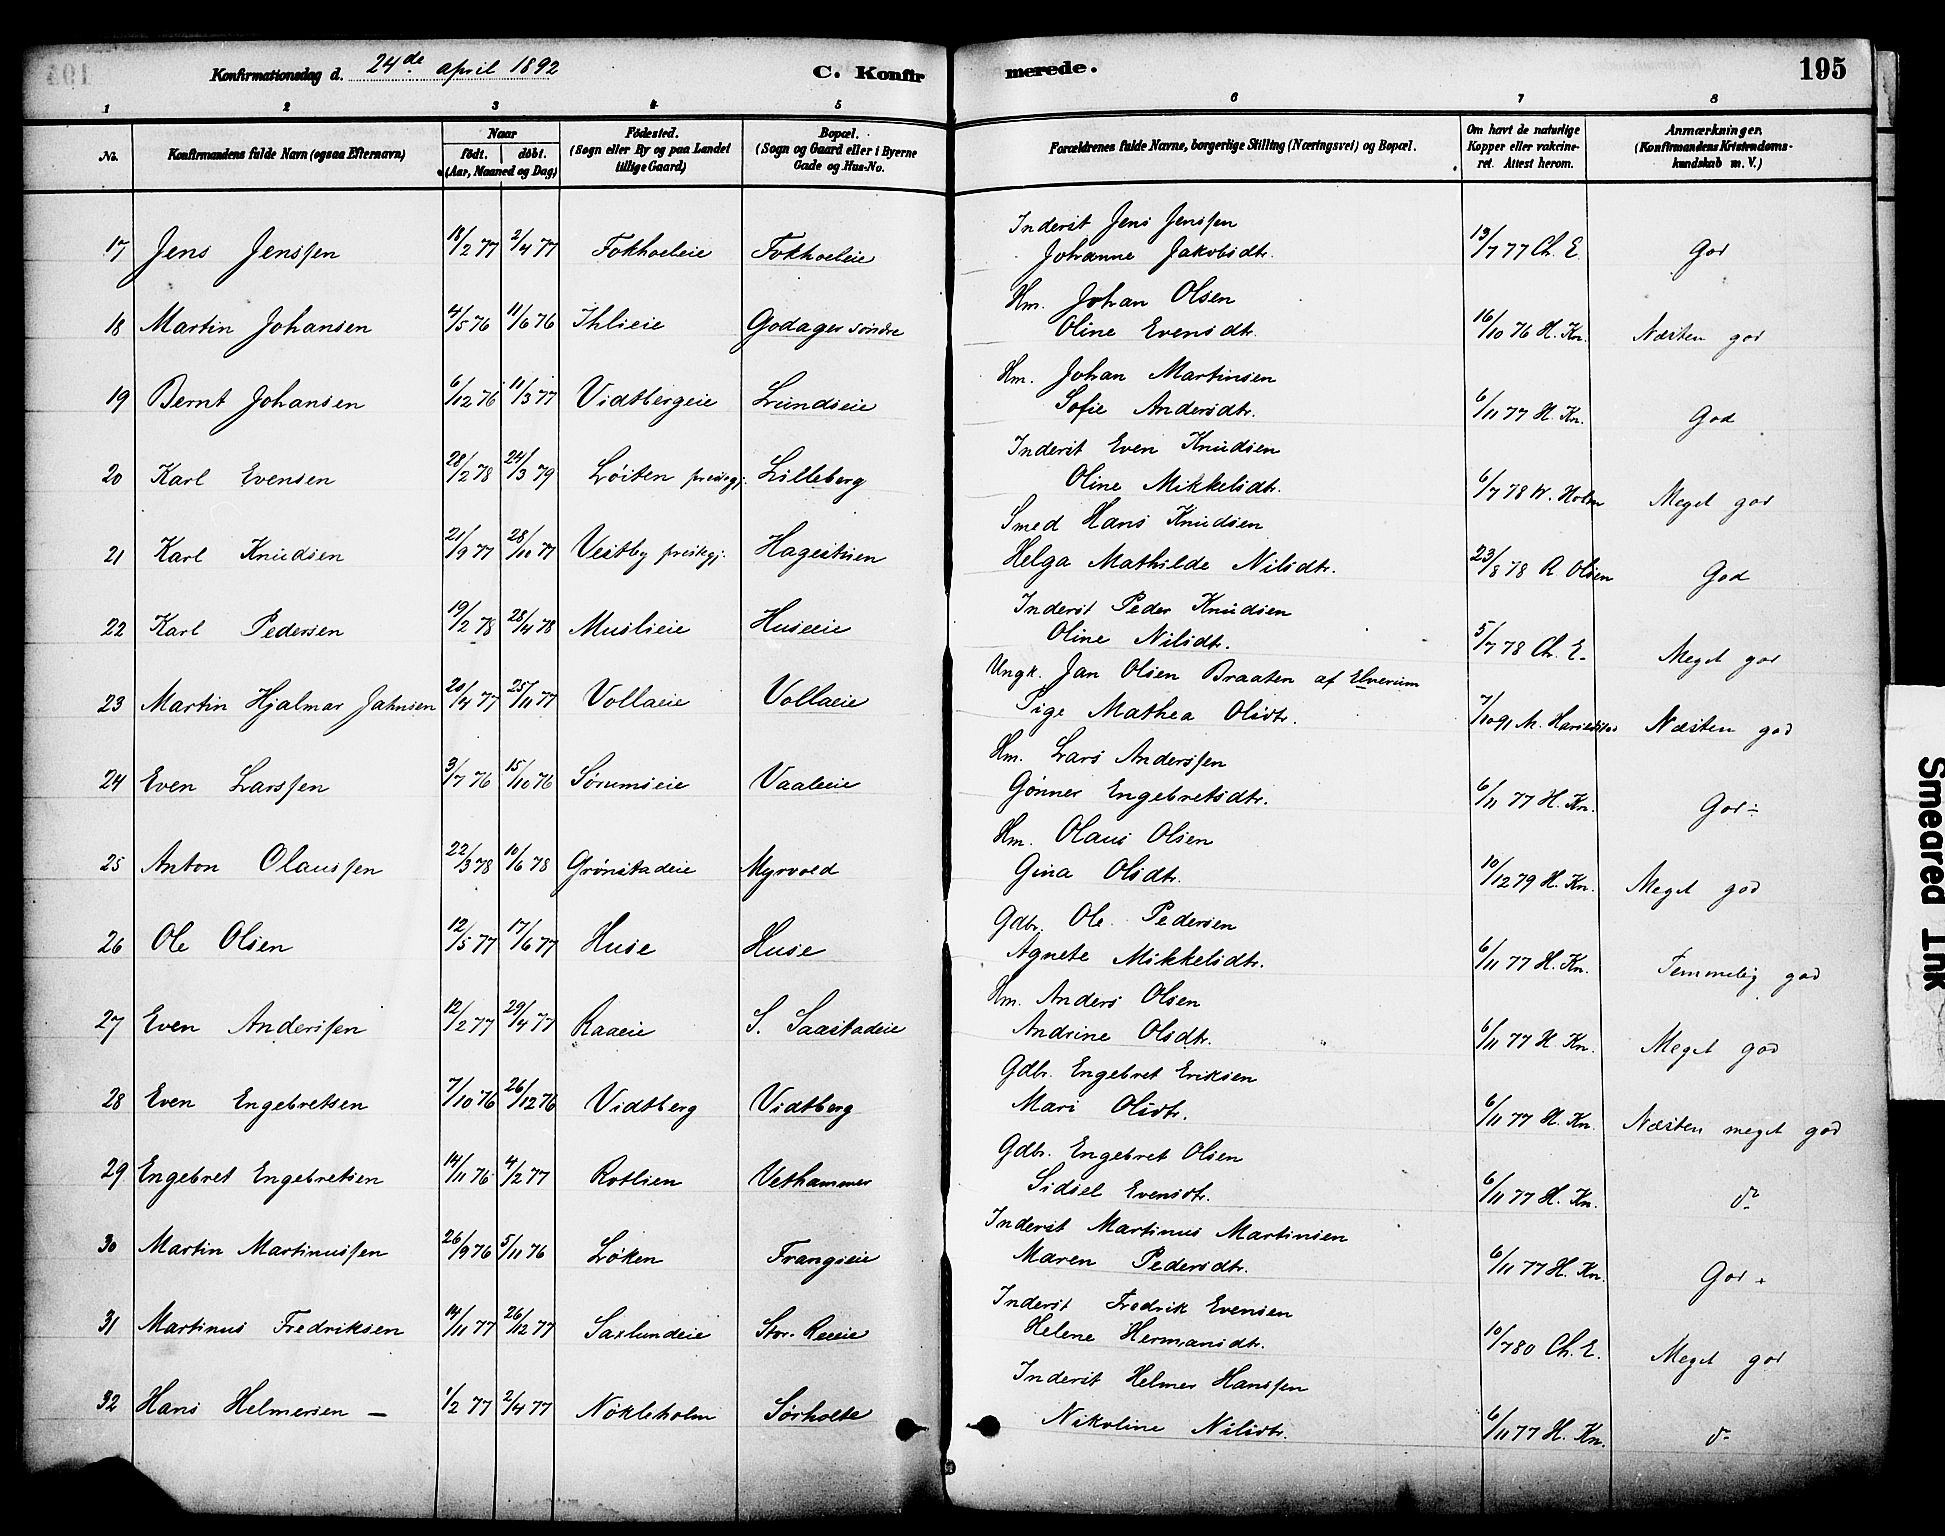 Konfirmationsdag d. 24de april 1892 C. Konfirmerede. 195
1 2 3 4 5 6 7 8
No. Konfirmandens fulde Navn (ogsaa Efternavn) Naar født. døbt. (Aar, Maaned og Dag) Fødested. (Sogn eller By og paa Landet tillige Gaard) Bopæl. (Sogn og Gaard eller i Byerne Gade og Hus-No. Forældrenes fulde Navne, borgerlige Stilling (Næringsvei) og Bopæl. Om havt de naturlige Kopper eller vakcineret. Attest herom. Anmærkninger. (Konfirmandens Kristendomskundskab m. V.)
17 Jens Jenssen 18/2 77 2/4 77 Fokholeie Fokholeie Inderst Jens Jenssen
Johanne Jakobsdtr. 13/7 77 Ch. E. God
18 Martin Johansen 4/5 76 11/6 76 Ihlseie Godager søndre Hm. Johan Olsen
Oline Evensdtr. 16/10 76 H. Kn. Næsten god
19 Bernt Johansen 6/12 76 11/3 77 Vidtbergeie Lundseie Hm. Johan Martinsen
Sofie Andersdtr. 6/11 77 H. Kn. God
20 Karl Evensen 28/2 78 24/3 79 Løiten prestegj. Lilleberg Inderst Even Knudsen
Oline Mikkelsdtr. 6/7 78 W. Holm Meget god
21 Karl Knudsen 21/9 77 28/10 77 Vestby prestegj. Hagestuen Smed Hans Knudsen
Helga Mathilde Nilsdtr. 23/8 78 A Olsen God
22 Karl Pedersen 19/2 78 28/4 78 Muslieie Huseeie Inderst Peder Knudsen
Oline Nilsdtr. 5/7 78 Ch. E. Meget god
23 Martin Hjalmar Jahnsen 20/4 77 25/11 77 Vollaeie Vollaeie Ungk. Jan Olsen Braaten af Elverum
Pige Mathea Olsdtr. 7/10 91 Næsten god
24 Even Larssen 3/7 76 15/10 76 Sørumseie Vaaleie Hm. Lars Anderssen
Gønner Engebretsdtr. 6/11 77 H. Kn. God ÷
25 Anton Olaussen 22/3 78 10/6 78 Grønstadeie Myrvold Hm. Olaus Olsen
Gina Olsdtr. 10/12 79 H. Kn. Meget god
26 Ole Olsen 12/5 77 17/6 77 Huse Huse Gdbr. Ole Pedersen
Agnete Mikkelsdtr. 6/11 77 H. Kn. Temmelig god
27 Even Anderssen 12/2 77 29/4 77 Raaeie S. Saastadeie Hm. Anders Olsen
Andrine Olsdtr. 6/11 77 H. Kn. Meget god
28 Even Engebretsen 7/10 76 26/12 76 Vidtberg Vidtberg Gdbr. Engebret Eriksen
Mari Olsdtr. 6/11 77 H. Kn. Næsten meget god
29 Engebret Engebretsen 14/11 76 4/2 77 Rotlien Vethammer Gdbr. Engebret Olsen
Sidsel Evensdtr. 6/11 77 H. Kn. do
30 Martin Martinussen 26/9 76 5/11 76 Løken Frangseie Inderst Martinus Martinsen
Maren Pedersdtr. 6/11 77 H. Kn. God +
31 Martinus Fredriksen 14/11 77 26/12 77 Saxlundeie Stor. Raeie Inderst Fredrik Evensen
Helene Hermansdtr. 10/7 80 Ch. E. Meget god
32 Hans Helmersen — 1/2 77 2/4 77 Nøkleholm Sørholte Inderst Helmer Hanssen
Nikoline Nilsdtr. 6/11 77 H. Kn. do
Smeared Ink